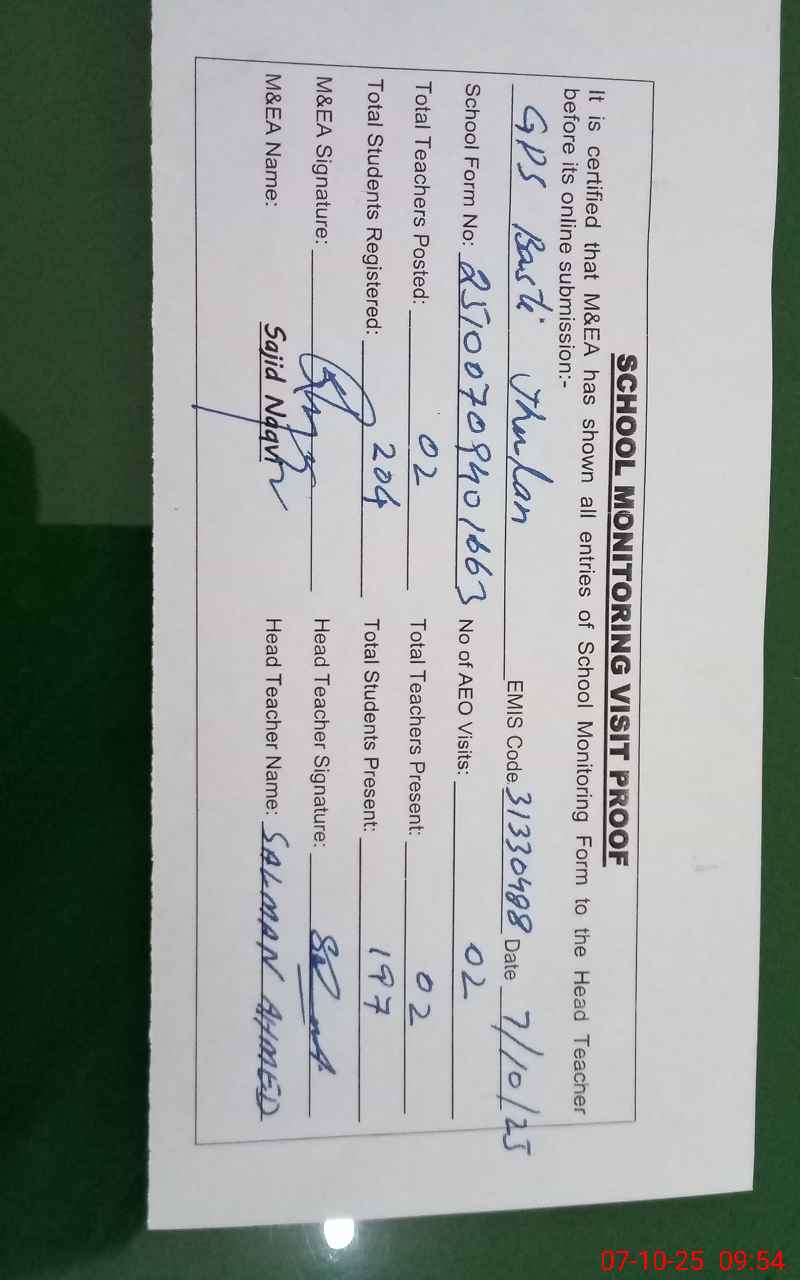 SCHOOL MONITORING VISIT PROOF
It is certified that M&EA has shown all entries of School Monitoring Form to the Head Teacher
before its online submission:-
GPS Basti EMIS Code 31330488 Date 7/10/25
School Form No: 2510070940 1663 No of AEO Visits: 02
Total Teachers Posted: 02 Total Teachers Present: 02
Total Students Registered: 204 Total Students Present: 197
M&EA Signature: Head Teacher Signature:
M&EA Name: Sajid Naqvi Head Teacher Name: SALMAN AHMED
07-10-25 09:54